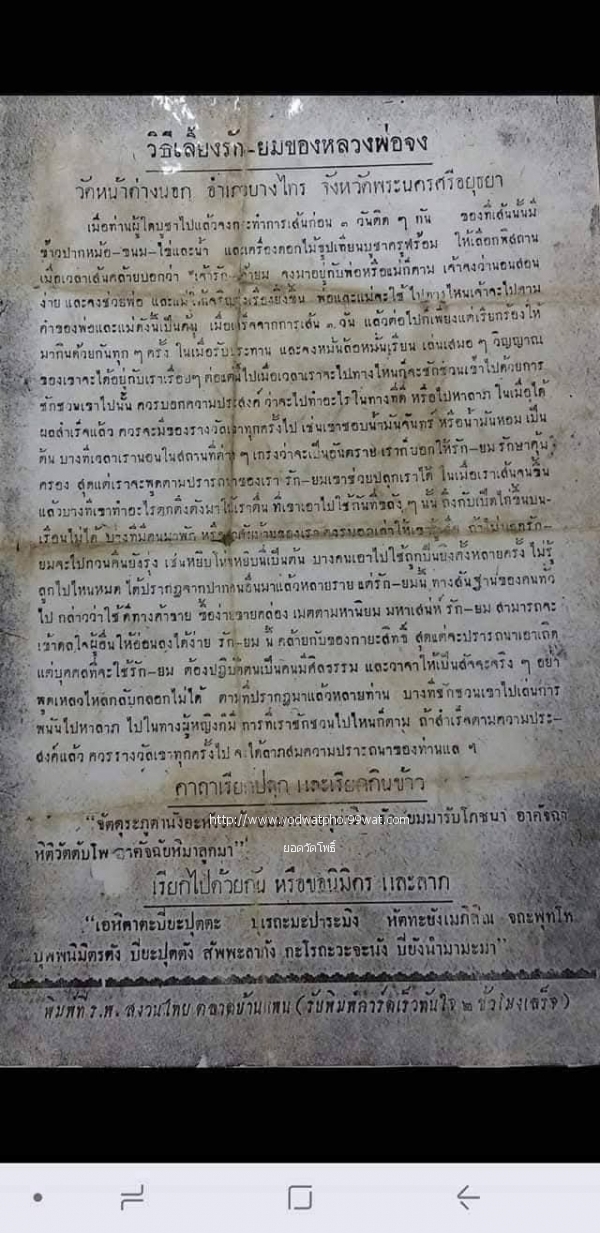 วิธีเลี้ยงรัก-ยมของหลวงพ่อจง
วัดหน้าต่างนอก อำเภอบางไทร จังหวัดพระนครศรีอยุธยา
เมื่อท่านผู้ใดบูชาไปแล้วจงกระทำการเส้นก่อน ๓ วันติด ๆ กัน ของที่เส้นนั้นมี
ข้าวปากหม้อ-ขนม-ไข่และน้ำ และเครื่องดอกไม้ธูปเทียนบูชาครูพร้อม ให้เลือกพิสถาน
เมื่อเวลาเส้นคล้ายบอกว่า "เจ้ารัก เจ้ายม จงมาอยู่กับพ่อหรือแม่ก็ตาม เจ้าจงว่านอนสอน
ง่าย และจงช่วยพ่อ และแม่ ให้เจริญรุ่งเรืองยิ่งขึ้น พ่อและแม่จะใช้ ไปทางไหนเจ้าจะไปตาม
คำของพ่อและแม่ดังนี้เป็นต้น เมื่อเสร็จจากการเส้น ๓ วัน แล้วต่อไปก็เพียงแต่เรียกร้องให้
มากินด้วยกันทุก ๆ ครั้ง ในเมื่อรับประทาน และจงหมั่นถือหมั่นเรียน เล่นเสมอ ๆ วิญญาณ
ของเขาจะได้อยู่กับเราเรื่อยๆ ต่อแต่นี้ไปเมื่อเวลาเราจะไปทางไหนก็จะชักชวนเขาไปด้วยการ
ชักชวนเขาไปนั้น ควรบอกความประสงค์ ว่าจะไปทำอะไร ในทางที่ดี หรือไปหาลาภ ในเมื่อได้
ผลสำเร็จแล้ว ควรจะมีของรางวัลเขาทุกครั้งไป เช่นเขาชอบน้ำมันจันทร์ หรือน้ำมันหอม เป็น
ต้น บางทีเวลาเรานอนในสถานที่ต่าง ๆ เกรงว่าจะเป็นอันตราย เราก็บอกให้รัก-ยม รักษาคุ้ม
ครอง สุดแต่เราจะพูดตามปรารถนาของเรา รัก-ยมเขาช่วยปลุกเราได้ ในเมื่อเราเส้นจนขึ้น
แล้วบางทีเขาทำอะไรตกตึงตังมาให้เราตื่น ที่เขาเอาไปใช้กันที่ขลัง ๆ นั้น ถึงกับเป็ดไก่ขึ้นบน-
เรือนไม่ได้ บางทีมีคนมาพัก บ้านของเรา ควรบอกเล่าให้เขา ถ้าไม่บอกรัก-
ยมจะไปกวนคืนยังรุ่ง เช่นหยิบโน่นหยิบนี่เป็นต้น บางคนเอาไปใช้ถูกปืนยิงตั้งหลายครั้ง ไม่รู้
ลูกไปไหนหมด ได้ปรากฏจากปากคนอื่นมาแล้วหลายราย แต่รัก-ยมนี้ ทางสันฐานของคนทั่ว
ไป กล่าวว่าใช้ดีทางค้าขาย ซื้อง่ายขายคล่อง เมตตามหานิยม มหาเสน่ห์ รัก-ยม สามารถจะ
เข้าดลใจผู้อื่นให้อ่อนลงได้ง่าย รัก-ยม นี้ คล้ายกับของกายะสิทธิ์ สุดแต่จะปรารถนาเอาเถิด
แต่บุคคลที่จะใช้รัก-ยม ต้องปฏิบัติตนเป็นคนมีศีลธรรม และวาจาให้เป็นสัจจะจริง ๆ อย่า
พูดเหลวไหลกลับกลอกไม่ได้ ตามที่ปรากฏมาแล้วหลายท่าน บางทีชักชวนเขาไปเล่นการ
พนันไปหาลาภ ไปในทางผู้หญิงก็มี การที่เราชักชวนไปไหนก็ตาม ถ้าสำเร็จตามความประ-
สงค์แล้ว ควรรางวัลเขาทุกครั้งไป จะได้ลาภสมความปรารถนาของท่านแล ฯ
คาถาเรียกปลุก และเรียกกินข้าว
"จัตตุระภูตานัง ยมมารับโภชนา อาคัจฉา
http://www.yodwatpho.99wat.com
หิติวัตตับโพ อาคัจฉัยหิมาลูกมา"
ยอดวัดโพธิ์
เรียกไปด้วยกัน หรือขอนิมิตร และลาภ
"เอหิตาตะปิยะปุตตะ ปุเรถะมะปาระมิง หัตทะยังเมภิสิณ จถะพุทโท
บุพพนิมิตรตัง ปิยะปุตตัง สัพพะลาภัง กะโรถะวะจะนัง ปิยังนำมามะมา"
พิมพ์ที่ ร.พ. สงวนไทย ตลาดบ้านแพน (รับพิมพ์การ์ดเร็วทันใจ ๒ ชั่วโมงเสร็จ)